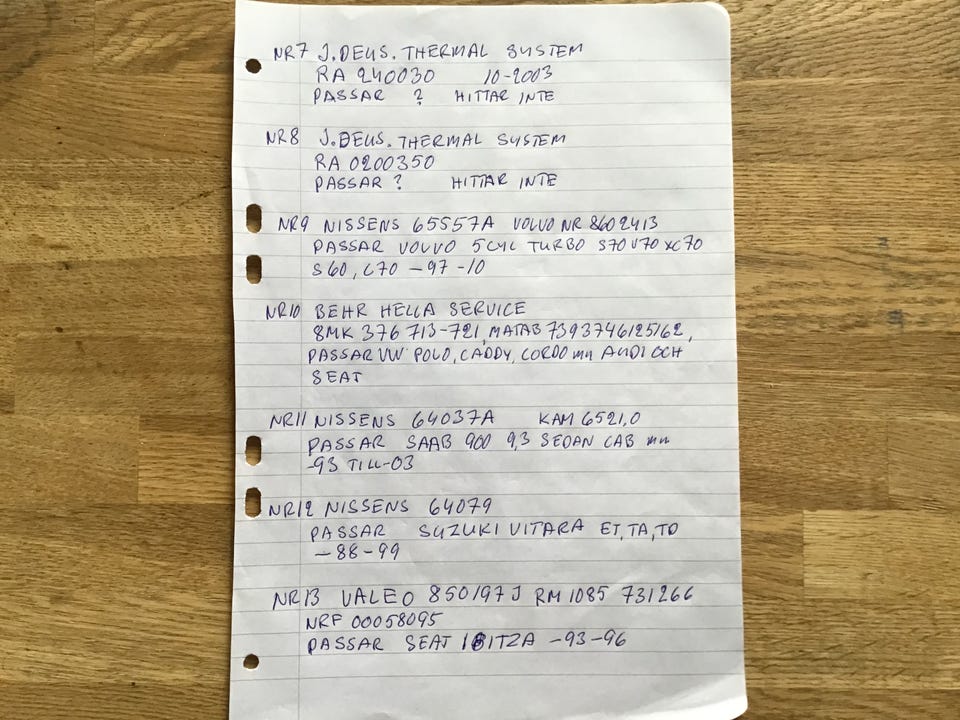 NR7 J.DEUS. THERMAL SYSTEM
RA 240030 10-2003
PASSAR ? HITTAR INTE
NR8 J.DEUS. THERMAL SYSTEM
RA 0200350
PASSAR ? HITTAR INTE
NR9 NISSENS 65557A VOLVO NR 8602413
PASSAR VOLVO 5CYL TURBO S70 V70 XC70
S60, C70 -97 -10
NR10 BEHR HELLA SERVICE
8MK 376 713-721, MATAB 7393746125162,
PASSAR VW POLO, CADDY, CORDO mn AUDI OCH
SEAT
NR11 NISSENS 64037A KAM 6521,0
PASSAR SAAB 900 9,3 SEDAN CAB mn
-93 TILL-03
NR12 NISSENS 64079
PASSAR SUZUKI VITARA ET, TA, TD
-88-99
NR13 VALEO 850197J RM 1085 731266
NRF 00058095
PASSAR SEAT IBITZA -93-96